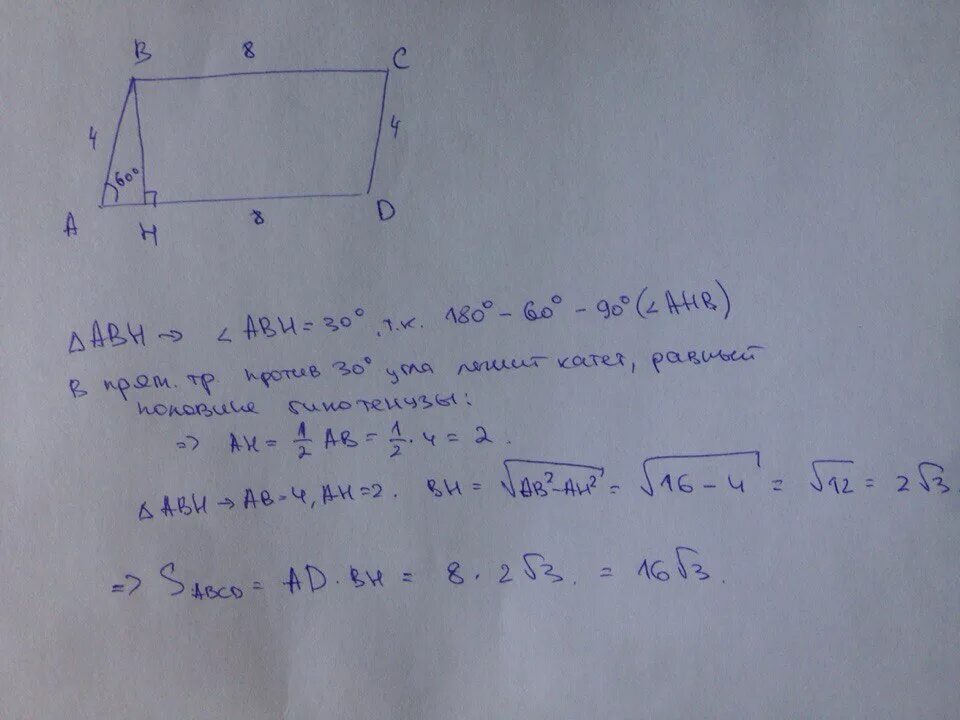 B 8 C
4 60° 4
A H 8 D
△ABH → ∠ABH = 30°, т.к. 180° - 60° - 90° (∠AHB)
В прям. тр. против 30° угла лежит катет, равный
половине гипотенузы:
=> AH = 1/2 AB = 1/2 · 4 = 2.
△ABH → AB = 4, AH = 2. BH = √(AB² - AH²) = √(16 - 4) = √12 = 2√3.
=> S_ABCD = AD · BH = 8 · 2√3 = 16√3.